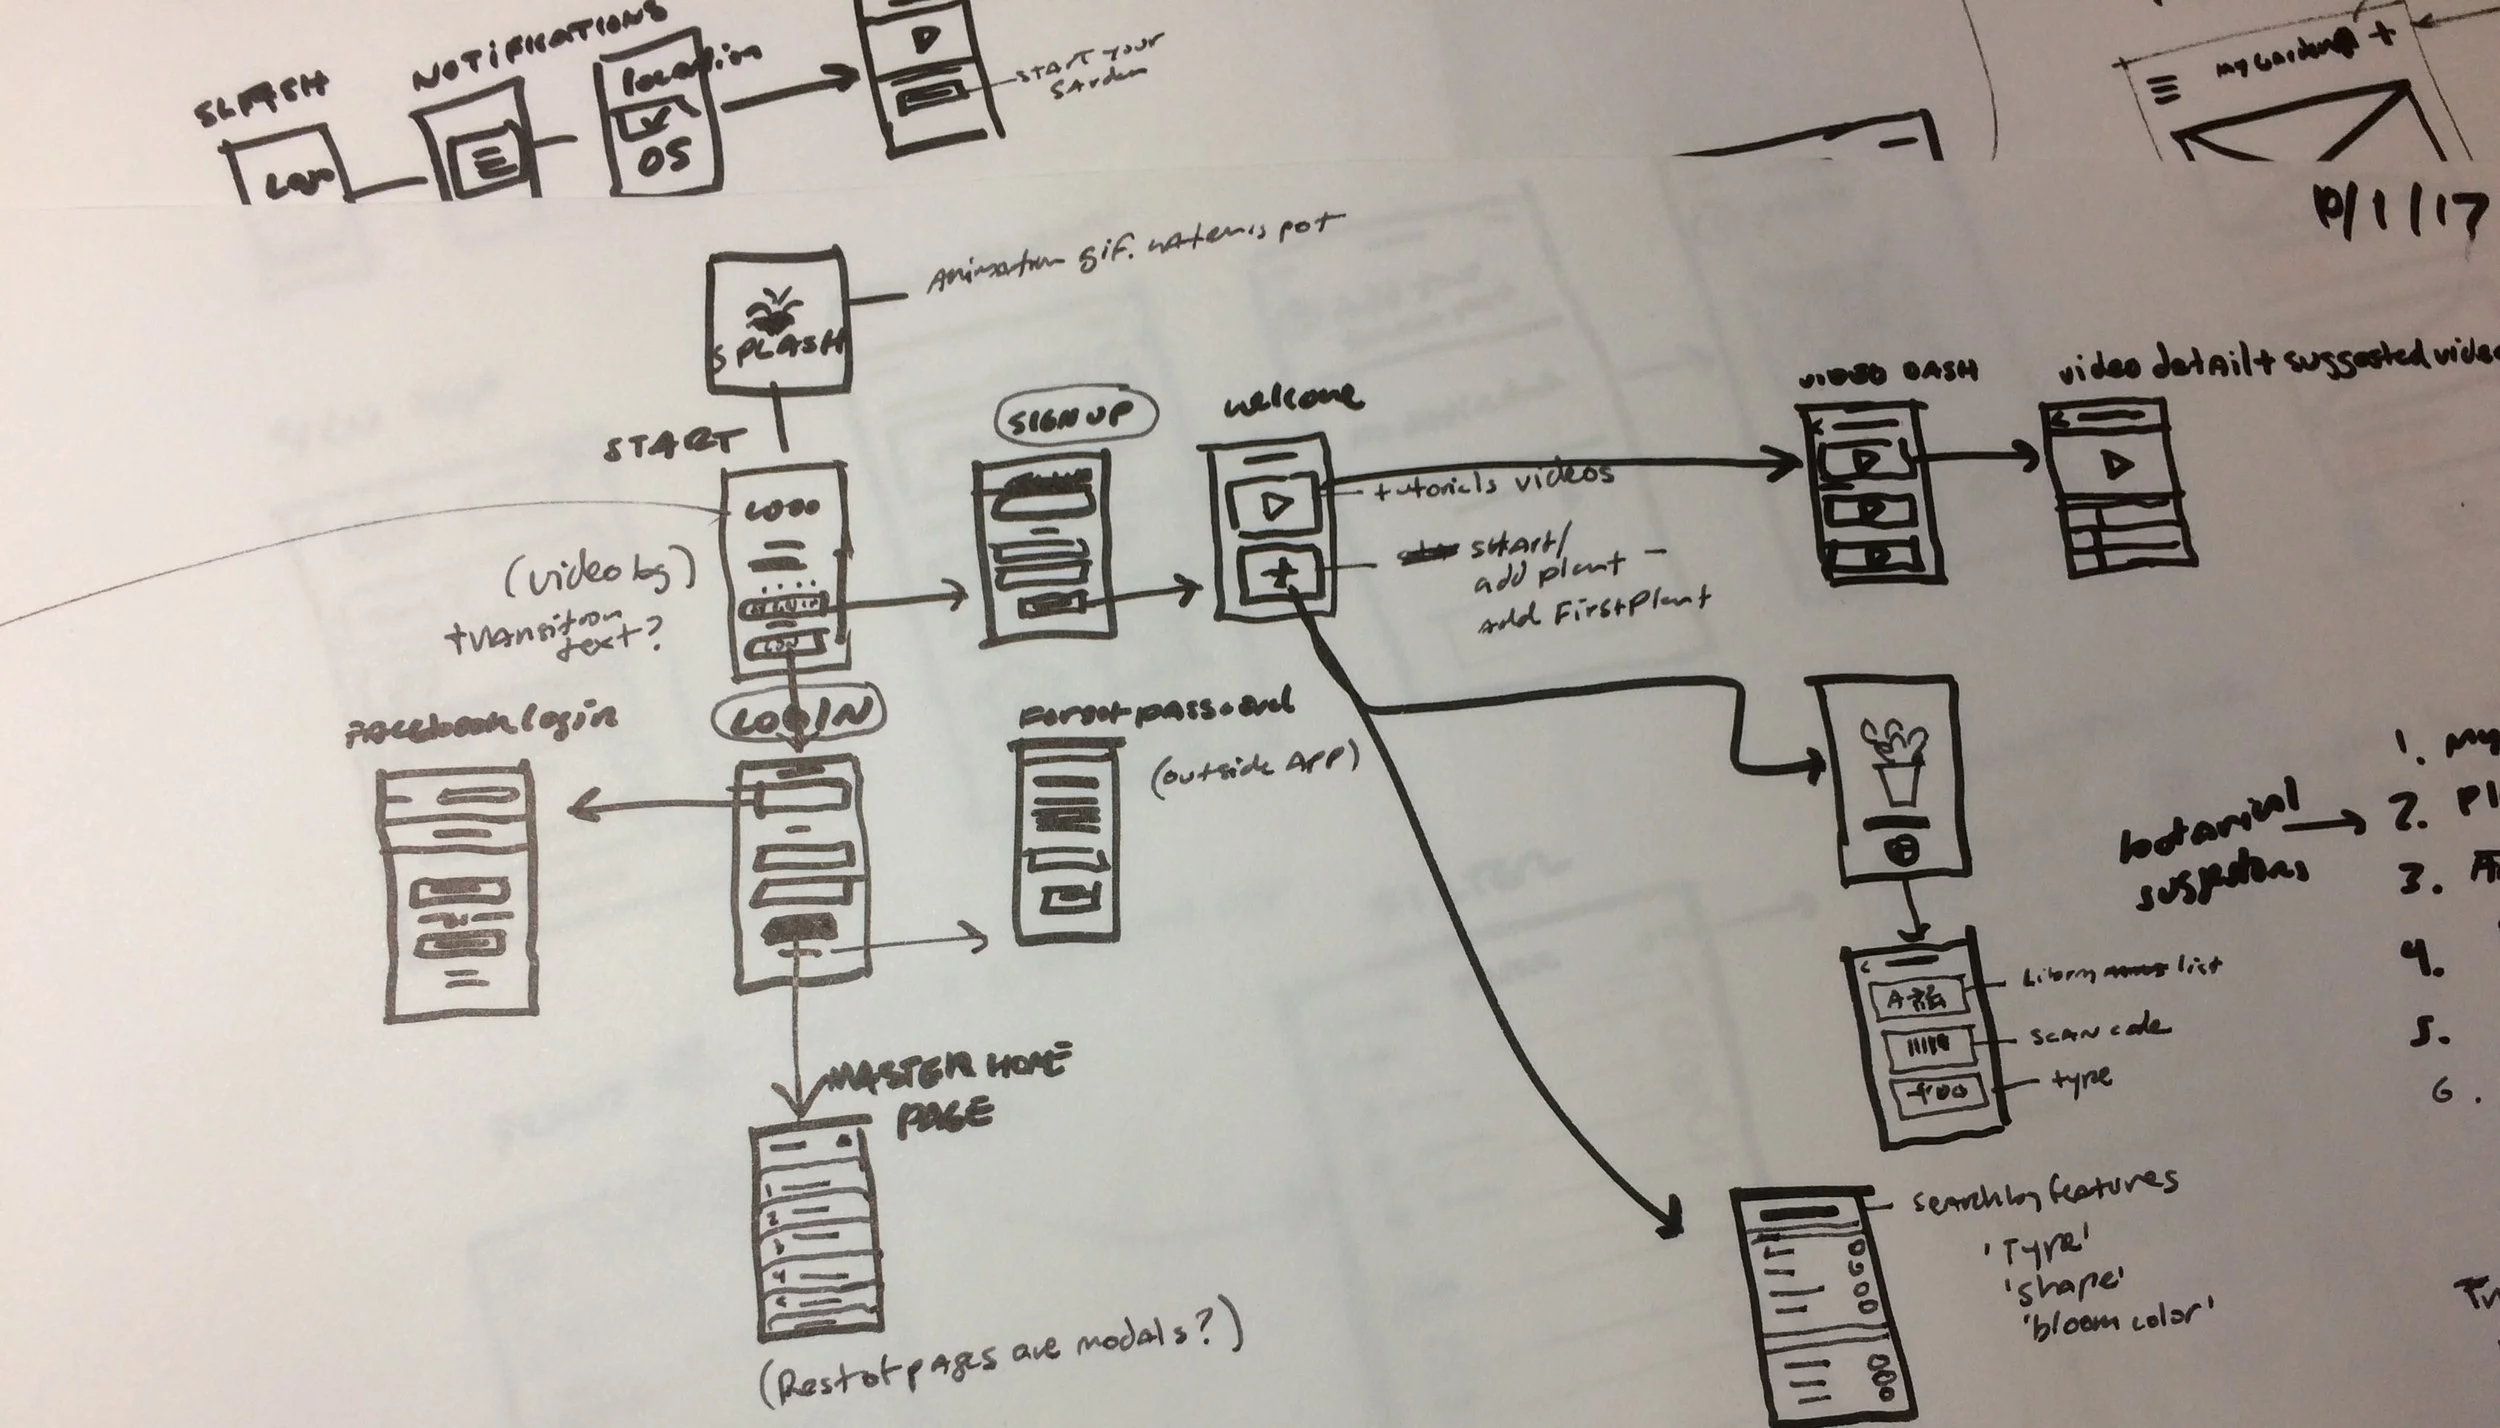 SPLASH
NOTIFICATIONS
location
OS
Logo
START your
GArden
my Garden +
/1/17
Animation gif. watering pot
SPLASH
START
SIGN UP
welcome
VIDEO DASH
video detail + suggested video
LOGO
tutorials videos
(video bg)
transition
text?
start/
add plant -
add First Plant
SIGN UP
LOGIN
Facebook login
Forgot password
(outside APP)
botanical
suggestions
1.
2. Pl
3.
4.
5.
6.
Library list
SCAN code
type
MASTER HOME
PAGE
Search by features
'Type'
'shape'
'bloom color'
(Rest of pages are modals?)